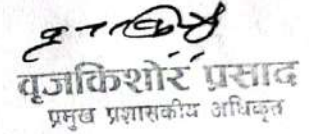 वृजकिशोर प्रसाद
प्रमुख प्रशासकीय अधिकृत